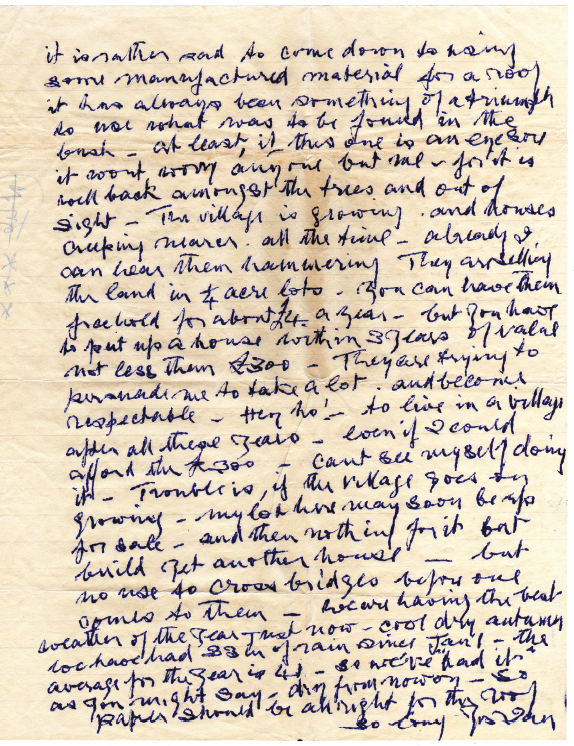 it is rather sad to come down to using
some manufactured material for a roof
it has always been something of a triumph
to use what was to be found in the
bush - at least, if this one is an eyesore
it wont worry anyone but me - for it is
well back amongst the trees and out of
sight - The village is growing . and houses
creeping nearer . all the time - already I
can hear them hammering They are selling
the land in ¼ acre lots - you can have them
freehold for about £4 a year - but you have
to put up a house within 3 years of value
not less than £300 - They are trying to
persuade me to take a lot . and become
respectable - Hey ho! - to live in a village
after all these years - even if I could
afford the £300 - cant see myself doing
it - Trouble is, if the village goes on
growing - my lot here may soon be up
for sale - and then nothing for it but
build yet another house - but
no use to cross bridges before one
comes to them - we are having the best
weather of the year just now - cool dry autumn
we have had 33 in of rain since Jan 1 - the
average for the year is 41 - so we've had it
as you might say - dry from now on - So
paper should be alright for the roof
so long